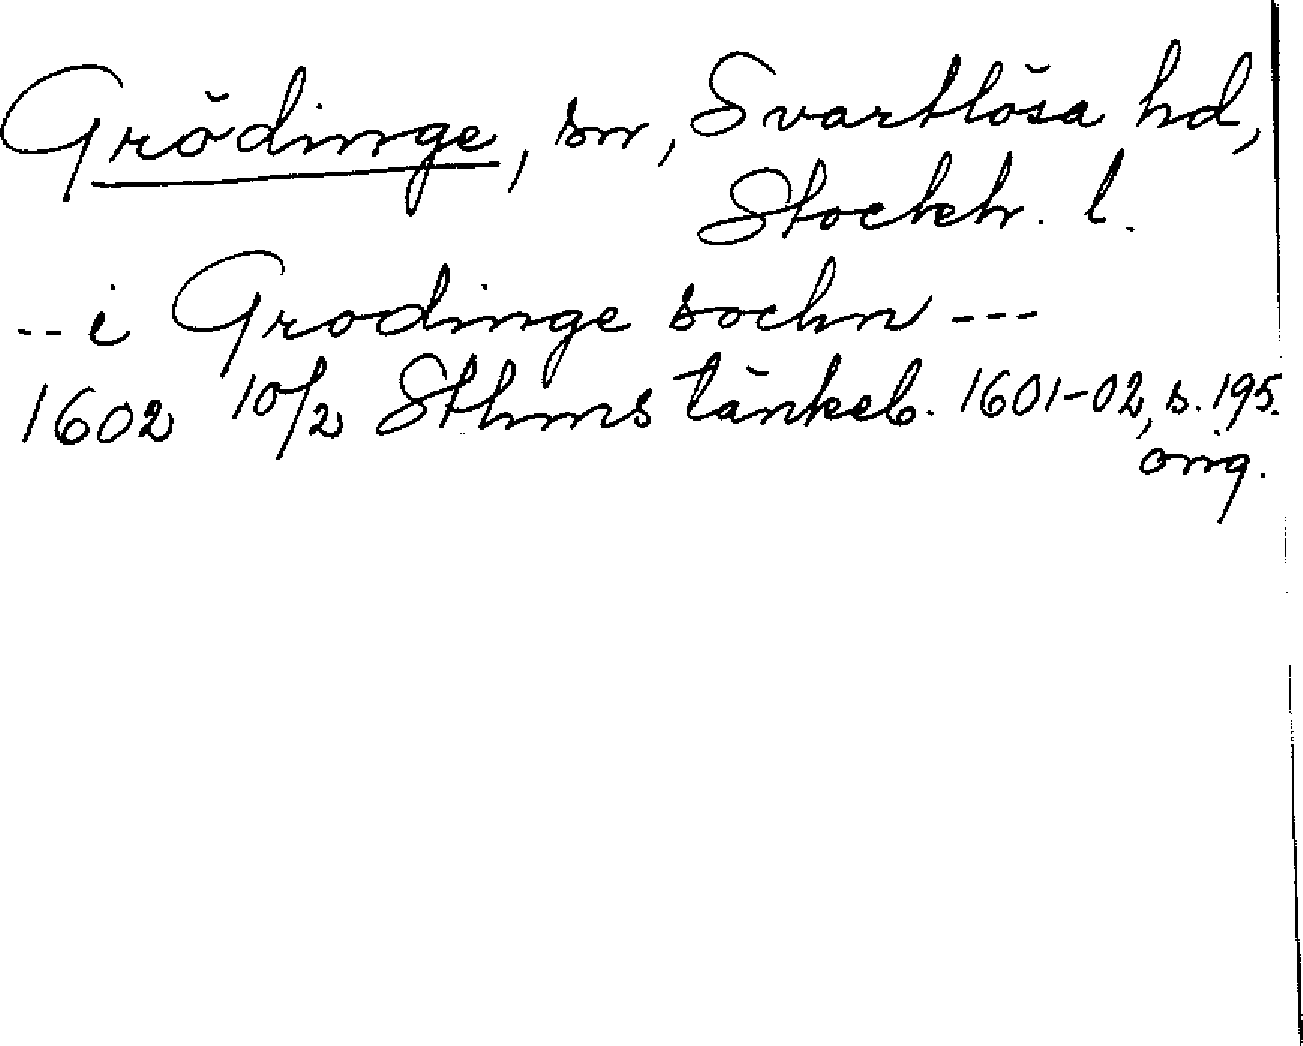 Grödinge, sn, Svartlösa hd,
Stockh. l.
-- i Grodinge sochn ---
1602 10/2 Sthms tänkeb. 1601-02, s. 195.
orig.